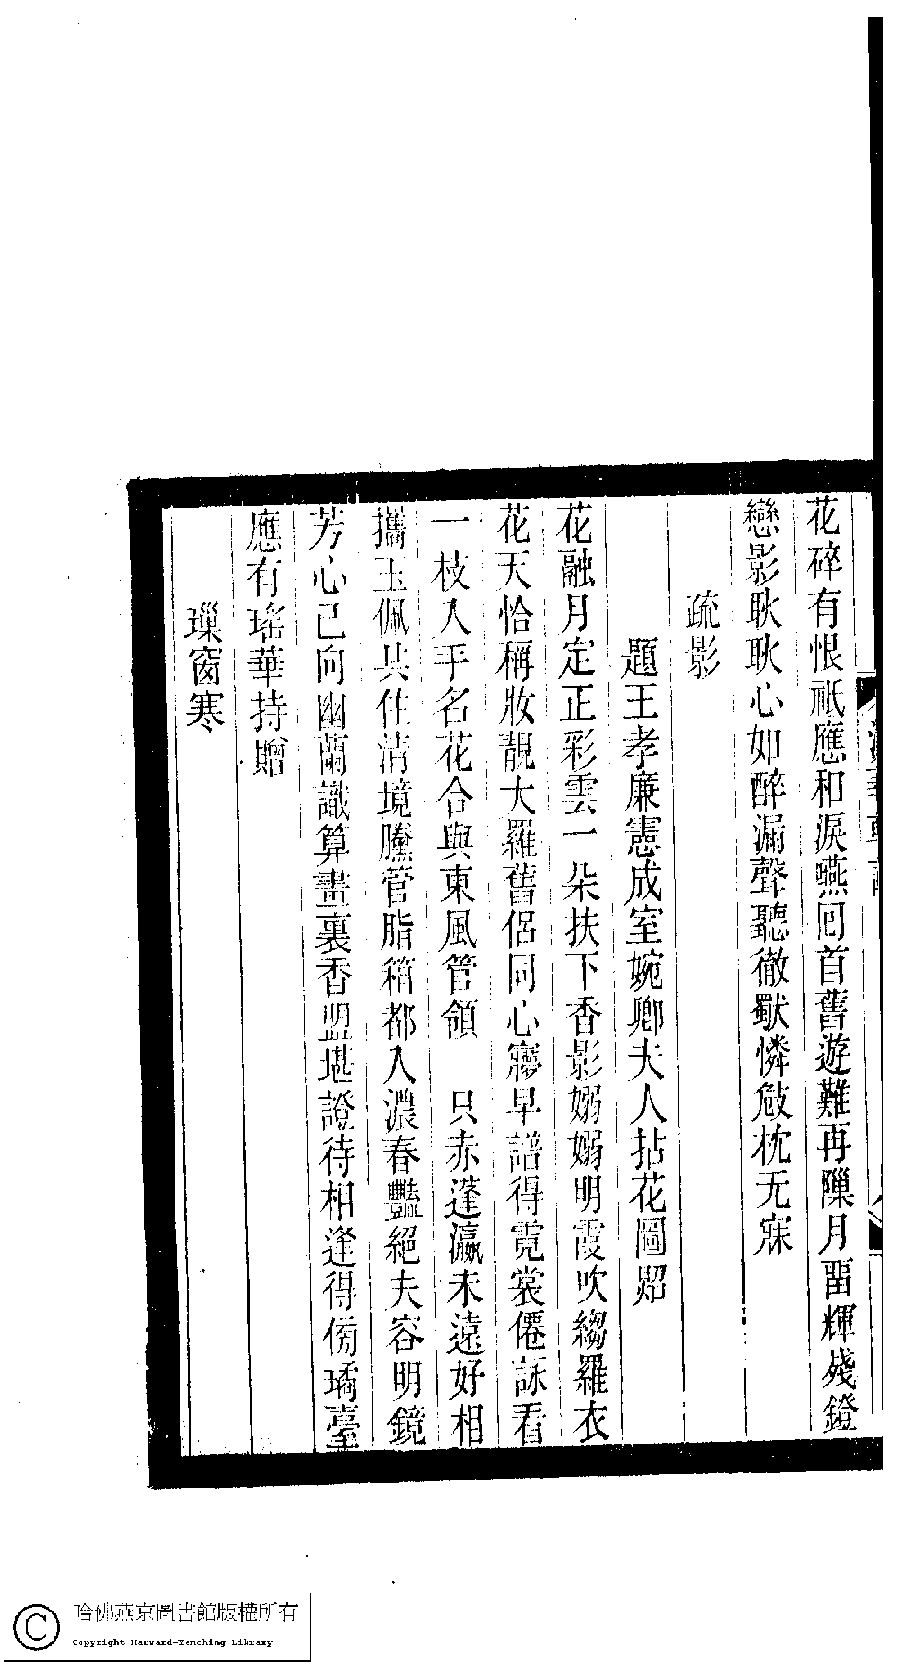 花碎有恨祇應和淚嚥回首舊遊難再隟月畱輝殘鐙
戀影耿耿心如醉漏聲聽徹獸憐攲枕无寐
疏影
題王孝廉憲成室婉卿夫人拈花圖照
花融月定正彩雲一朵扶下香影嫋嫋明霞吹縐羅衣
花天恰稱妝靚大羅舊侶同心寢早譜得霓裳僊詠看
一枝人乎名花合與東風管領　只赤蓬瀛未遠好相
攜玉佩共住清境騰管脂箱都入濃春豔絕夫容明鏡
芳心已向幽蘭識算畫裏香盟堪證待相逢得傍璚臺
應有瑤華持贈
璅窗寒
哈佛燕京圖書館版權所有
Copyright Harvard-Yenching Library